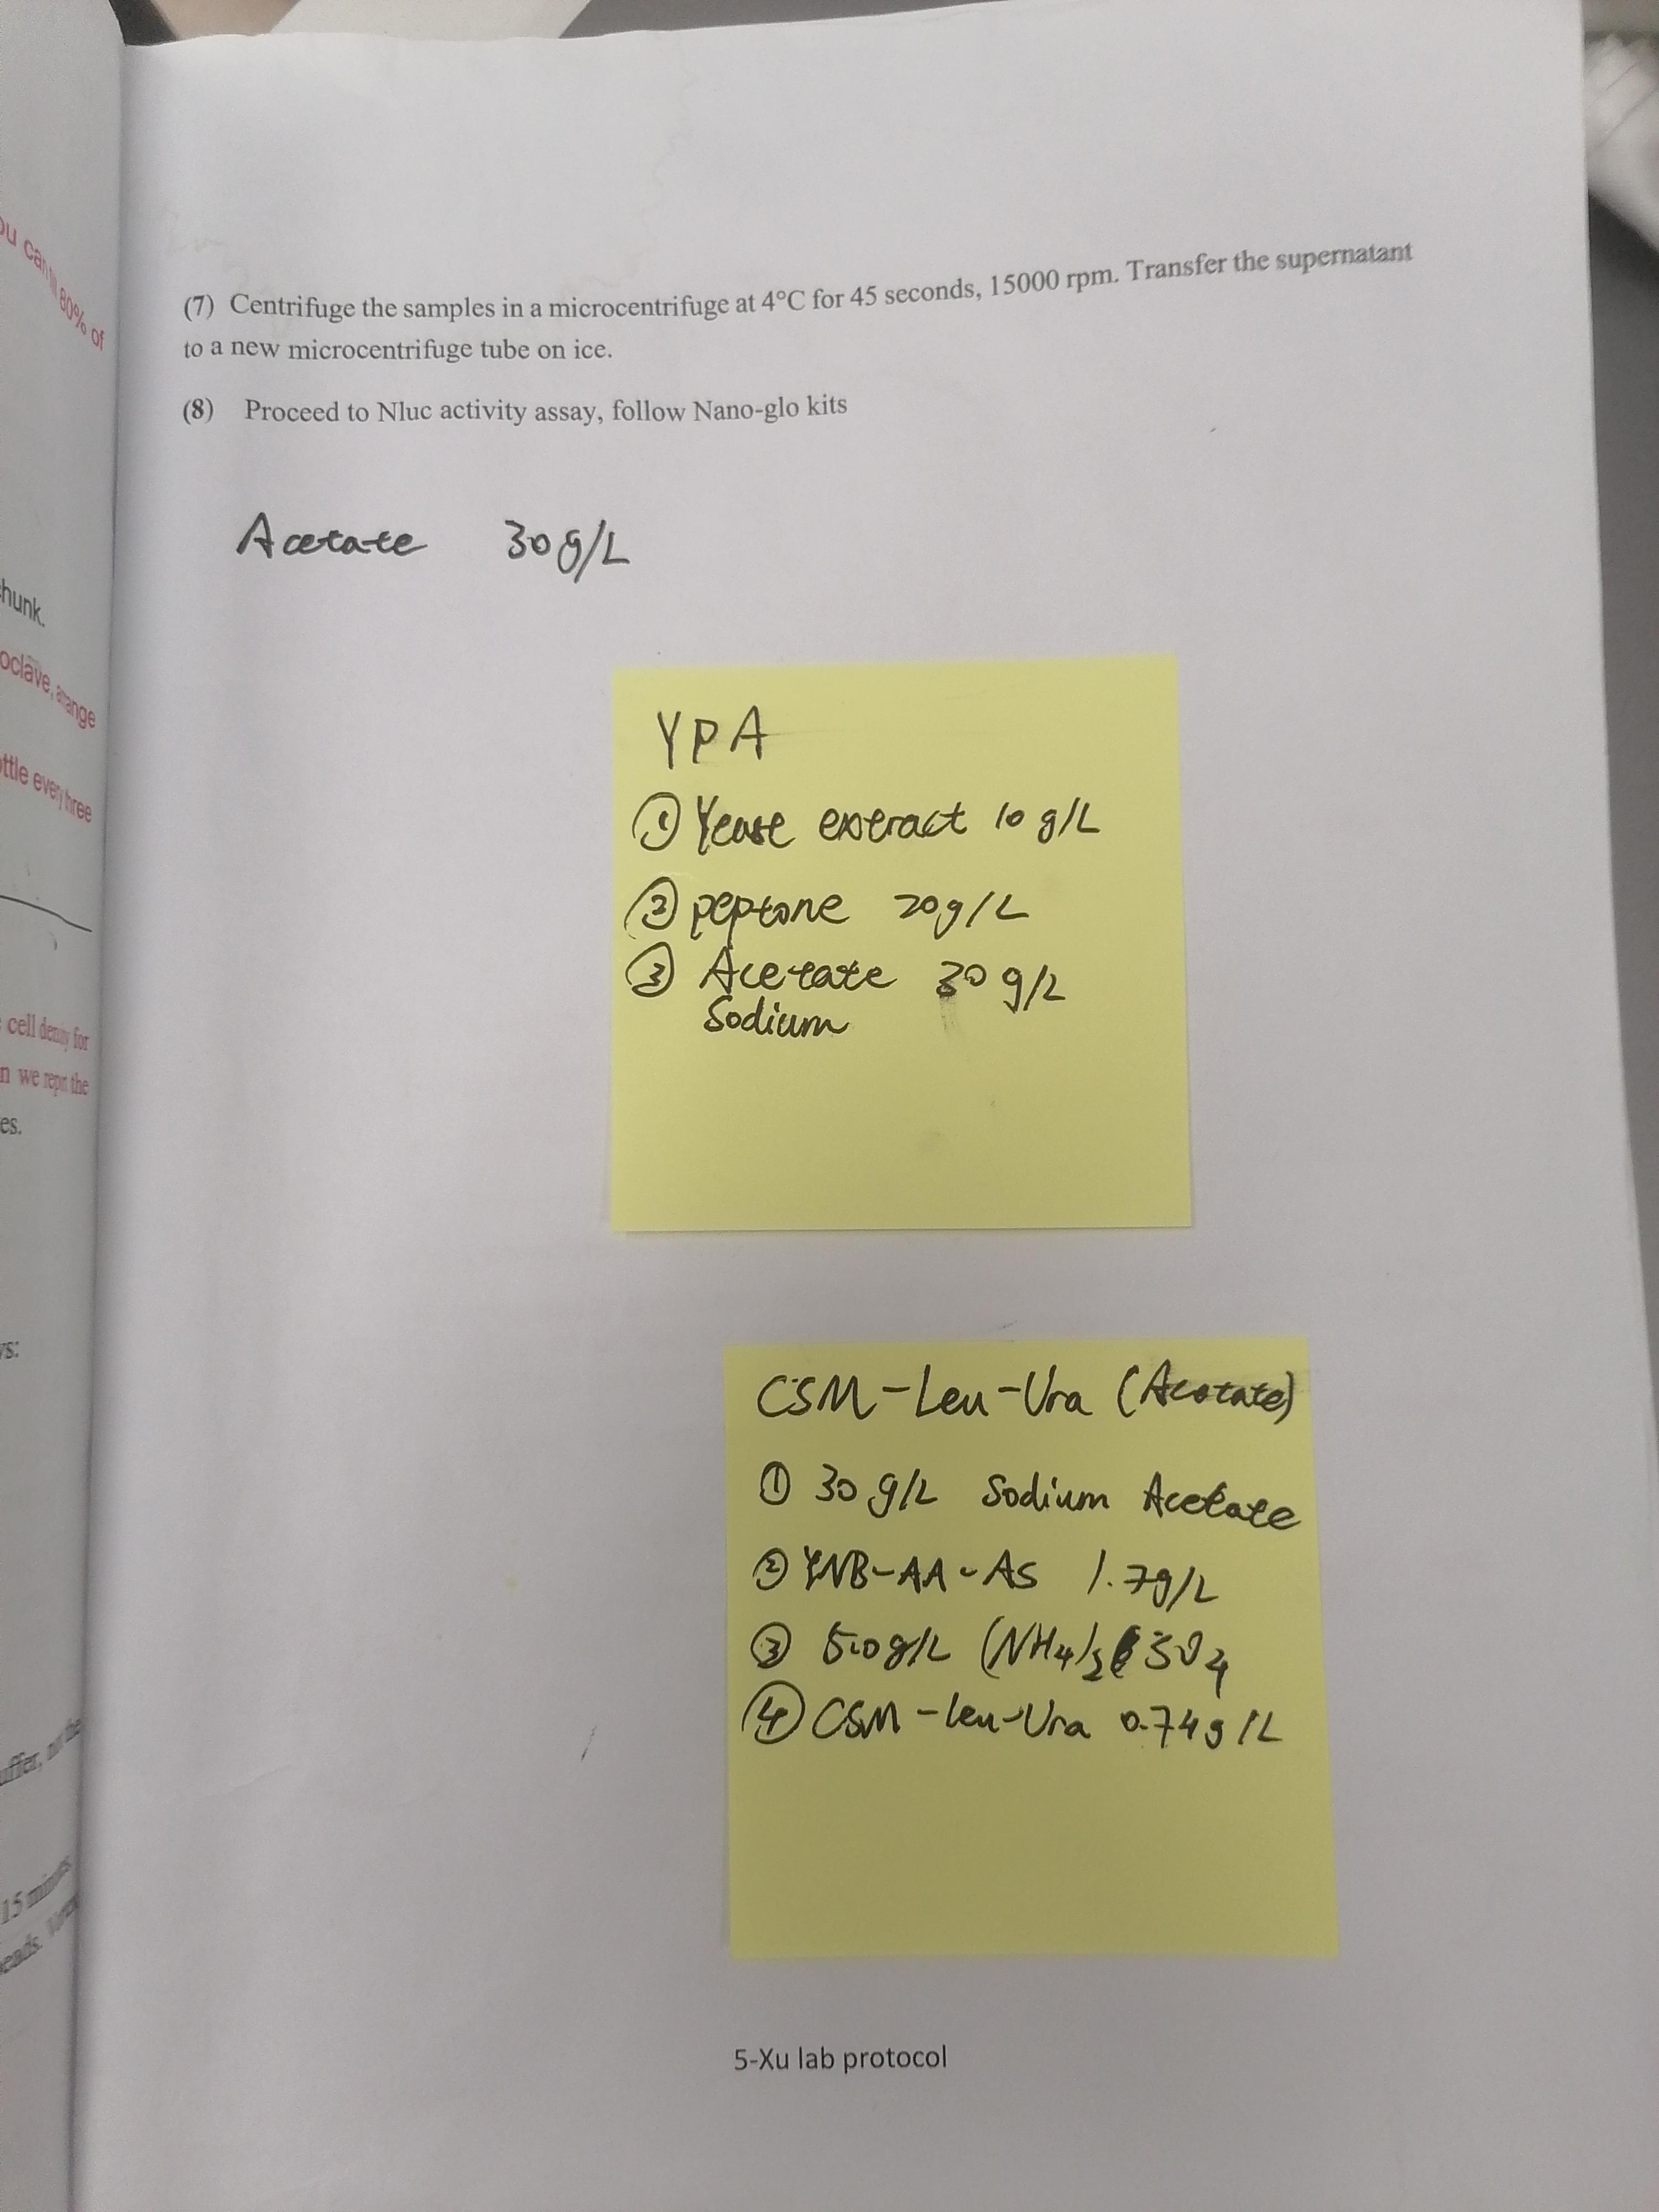 ou can
80% of
hunk.
oclave, arrange
ttle every three
cell density for
n we report the
es.
vs:
uffer,
15 minutes
eads.
(7) Centrifuge the samples in a microcentrifuge at 4°C for 45 seconds, 15000 rpm. Transfer the supernatant
to a new microcentrifuge tube on ice.
(8) Proceed to Nluc activity assay, follow Nano-glo kits
Acetate 30 g/L
YPA
① Yease extract 10 g/L
② peptone 20g/L
③ Acetate 30 g/L
Sodium
CSM-Leu-Ura (Acetate)
① 30 g/L Sodium Acetate
② YNB-AA-AS 1.7g/L
③ 5.0g/L (NH4)2SO4
④ CSM-leu-Ura 0.74g/L
5-Xu lab protocol